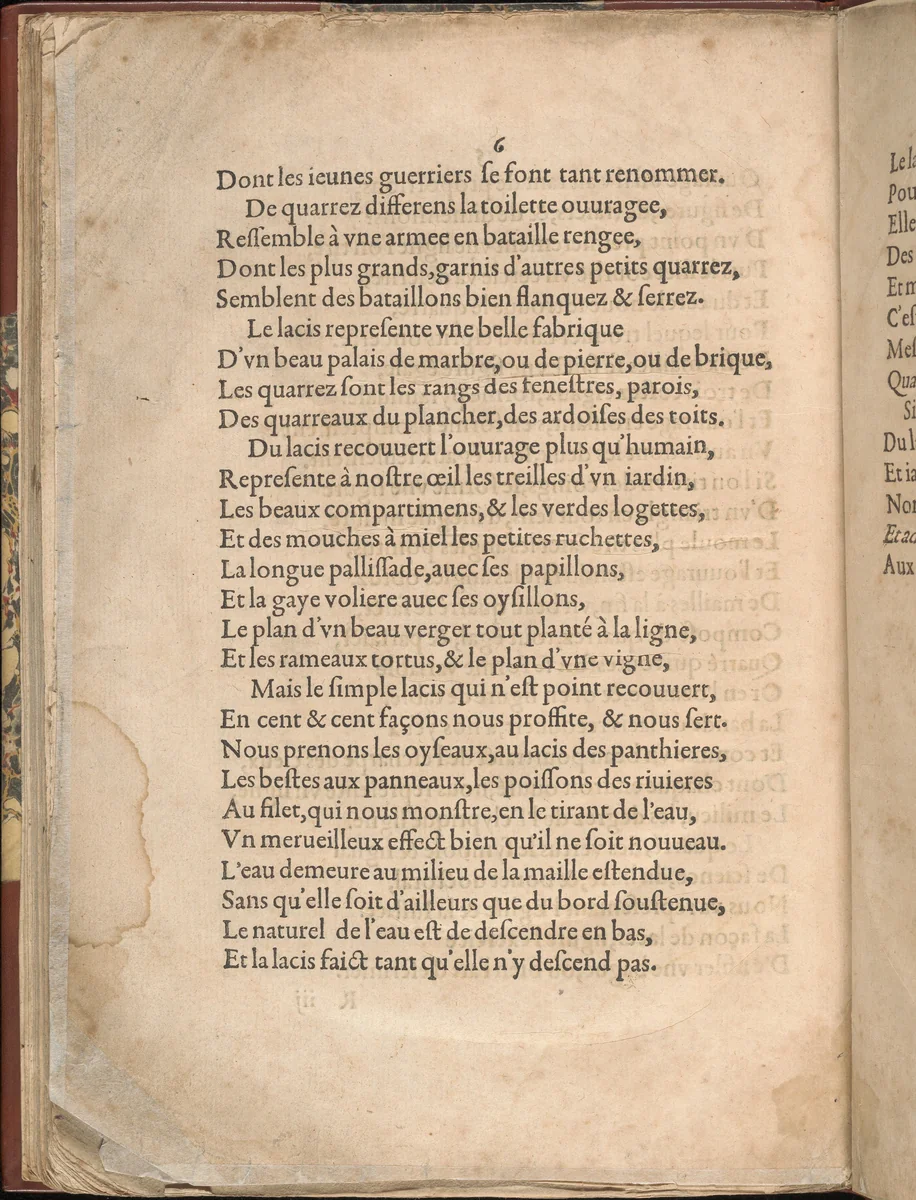 6
Dont les ieunes guerriers ſe font tant renommer.
De quarrez differens la toilette ouuragee,
Reſſemble à vne armee en bataille rengee,
Dont les plus grands,garnis d'autres petits quarrez,
Semblent des bataillons bien flanquez & ſerrez.
Le lacis repreſente vne belle fabrique
D'vn beau palais de marbre,ou de pierre,ou de brique,
Les quarrez ſont les rangs des feneſtres, parois,
Des quarreaux du plancher,des ardoiſes des toits.
Du lacis recouuert l'ouurage plus qu'humain,
Repreſente à noſtre œil les treilles d'vn iardin,
Les beaux compartimens,& les verdes logettes,
Et des mouches à miel les petites ruchettes,
La longue palliſſade,auec ſes papillons,
Et la gaye voliere auec ſes oyſillons,
Le plan d'vn beau verger tout planté à la ligne,
Et les rameaux tortus,& le plan d'vne vigne,
Mais le ſimple lacis qui n'eſt point recouuert,
En cent & cent façons nous proffite, & nous ſert.
Nous prenons les oyſeaux,au lacis des panthieres,
Les beſtes aux panneaux,les poiſſons des riuieres
Au filet,qui nous monſtre,en le tirant de l'eau,
Vn merueilleux effect bien qu'il ne ſoit nouueau.
L'eau demeure au milieu de la maille eſtendue,
Sans qu'elle ſoit d'ailleurs que du bord ſouſtenue,
Le naturel de l'eau eſt de deſcendre en bas,
Et la lacis faict tant qu'elle n'y deſcend pas.
Le la
Pou
Elle
Des
Et m
C'eſ
Meſ
Qua
Si
Du l
Et ia
Non
Et ac
Aux